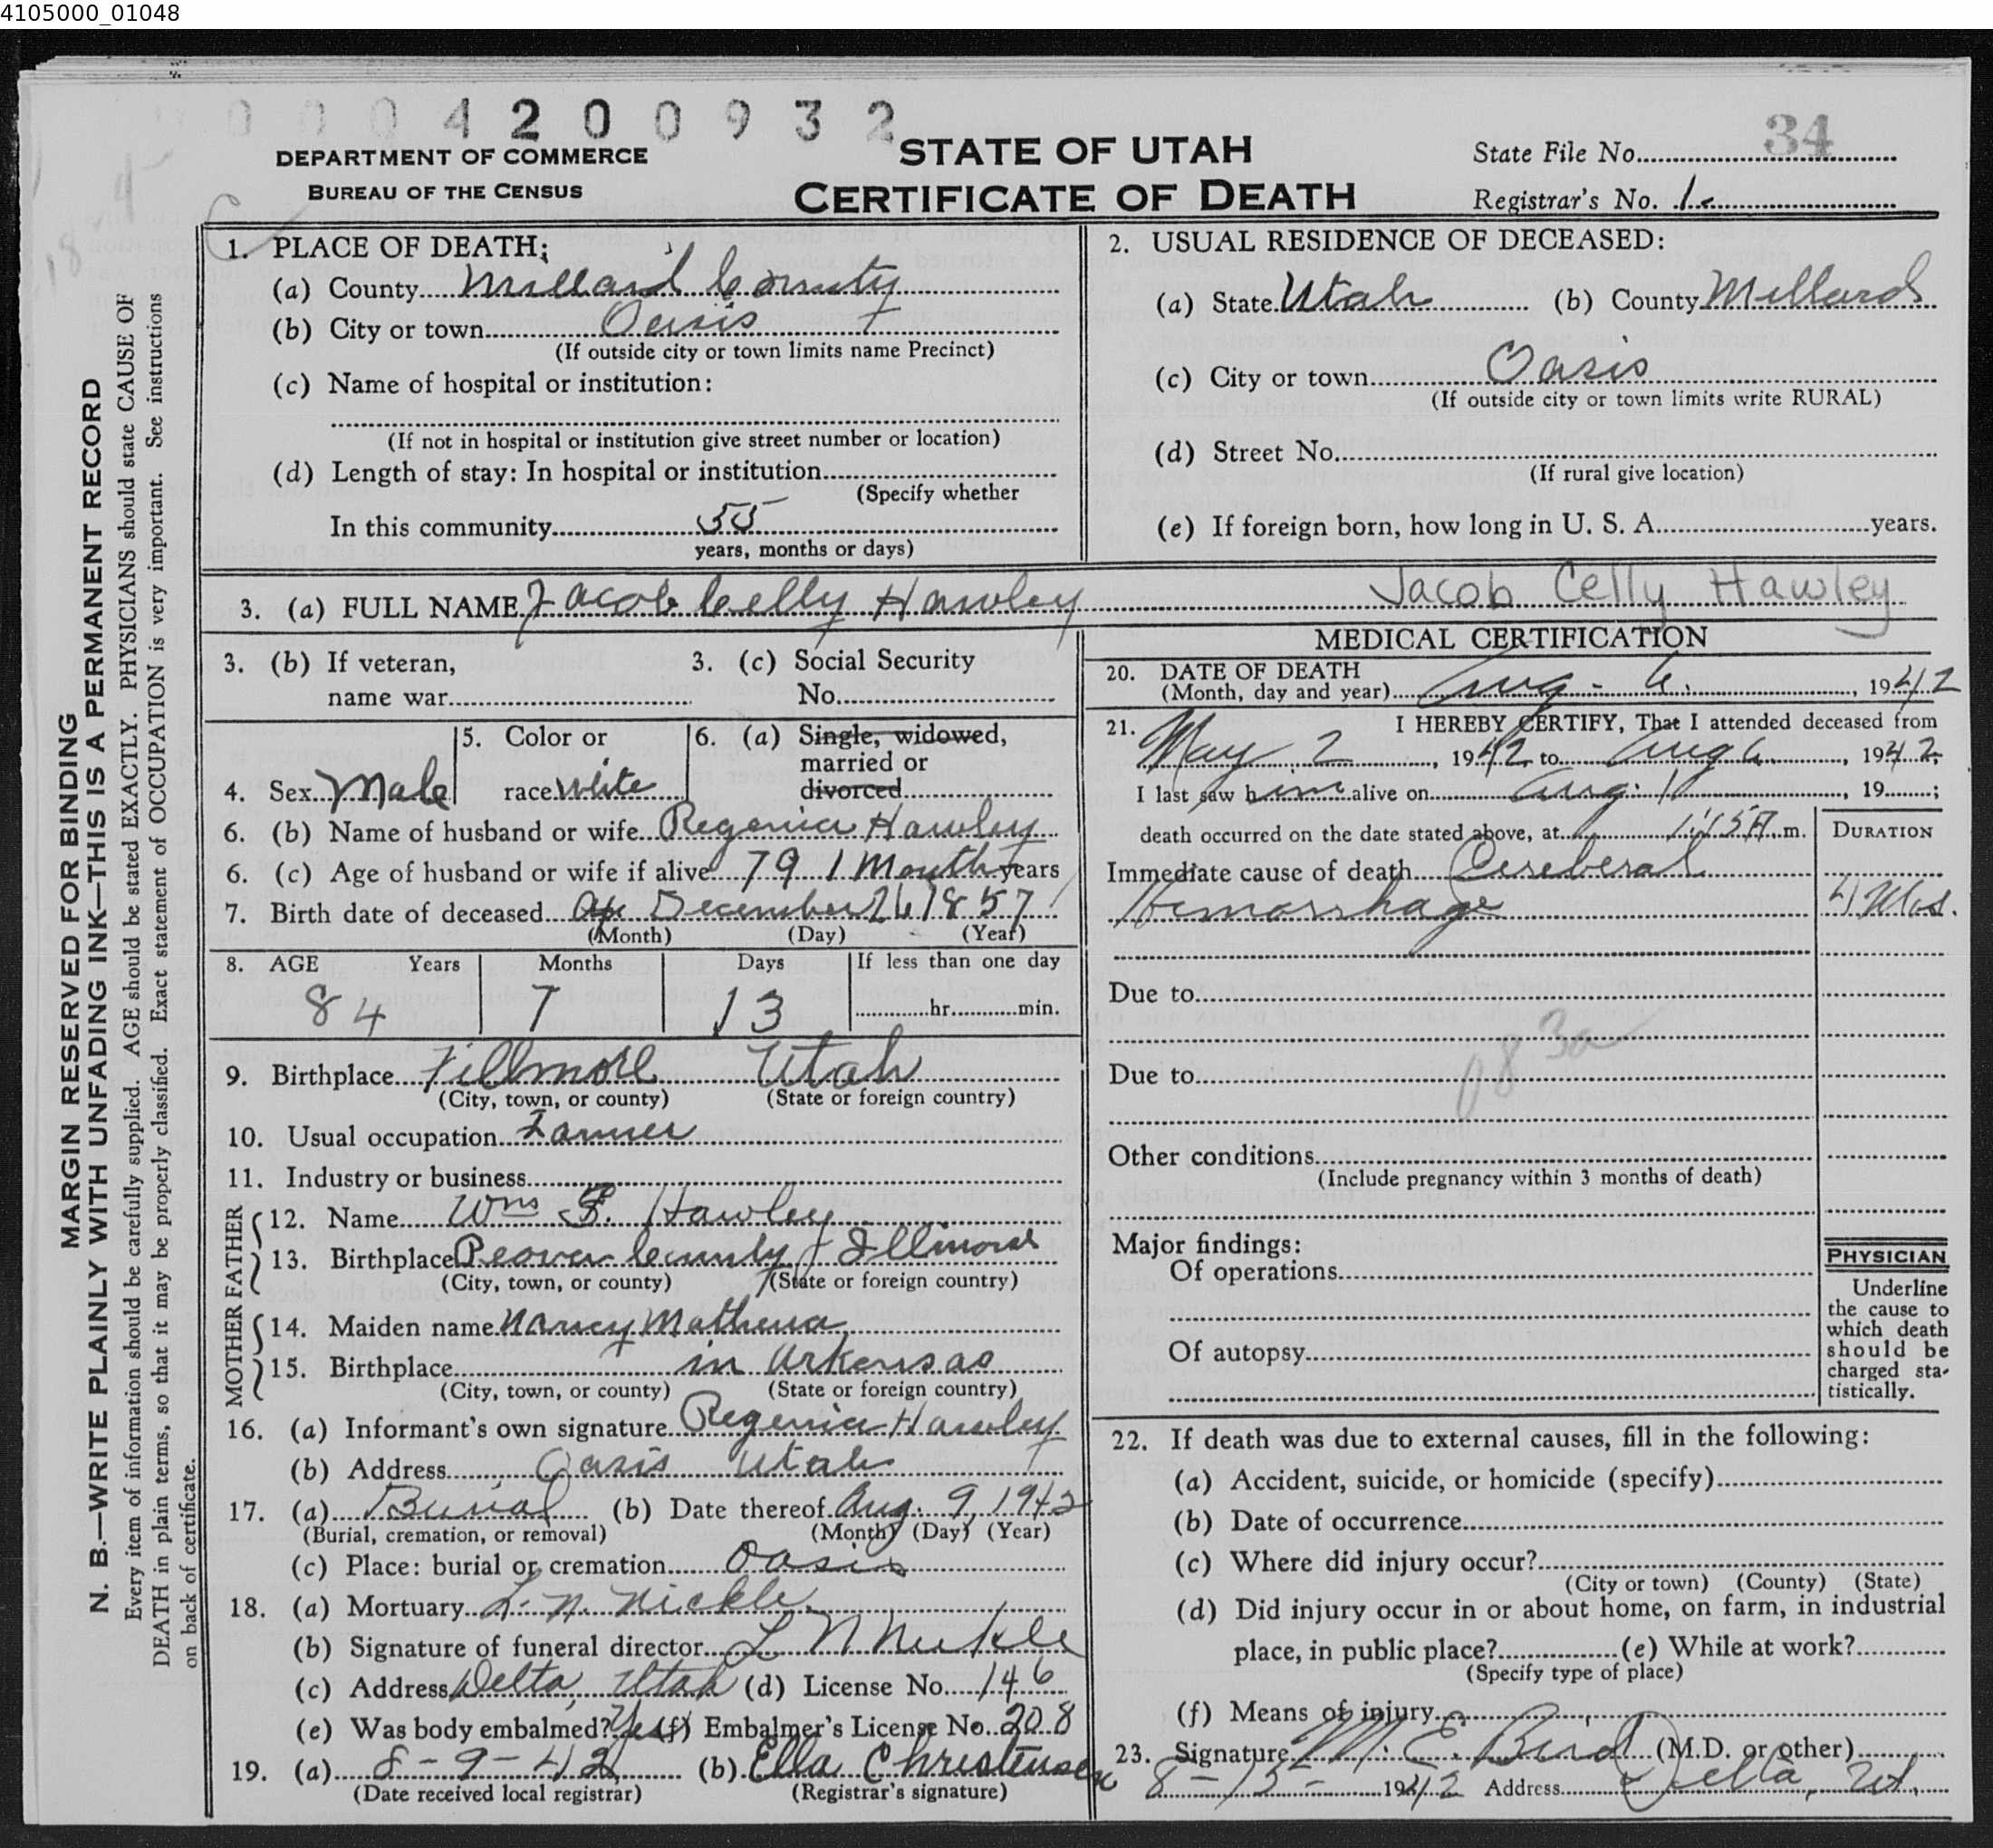 4105000_01048
0 0 0 4 2 0 0 9 3 2
DEPARTMENT OF COMMERCE
BUREAU OF THE CENSUS
STATE OF UTAH
CERTIFICATE OF DEATH
State File No. 34
Registrar's No. 1.
MARGIN RESERVED FOR BINDING
N. B.—WRITE PLAINLY WITH UNFADING INK—THIS IS A PERMANENT RECORD
Every item of information should be carefully supplied. AGE should be stated EXACTLY. PHYSICIANS should state CAUSE OF
DEATH in plain terms, so that it may be properly classified. Exact statement of OCCUPATION is very important. See instructions
on back of certificate.
1. PLACE OF DEATH:
(a) County Millard County
(b) City or town Oasis
(If outside city or town limits name Precinct)
(c) Name of hospital or institution:
(If not in hospital or institution give street number or location)
(d) Length of stay: In hospital or institution
(Specify whether
In this community 55
years, months or days)
2. USUAL RESIDENCE OF DECEASED:
(a) State Utah (b) County Millard
(c) City or town Oasis
(If outside city or town limits write RURAL)
(d) Street No.
(If rural give location)
(e) If foreign born, how long in U. S. A. years.
3. (a) FULL NAME Jacob Celly Hawley Jacob Celly Hawley
3. (b) If veteran,
name war
3. (c) Social Security
No.
4. Sex Male
5. Color or
race White
6. (a) Single, widowed,
married or
divorced
6. (b) Name of husband or wife Regenia Hawley
6. (c) Age of husband or wife if alive 79 1 Month years
7. Birth date of deceased December 26 1857
(Month) (Day) (Year)
8. AGE Years Months Days If less than one day
84 7 13 hr. min.
9. Birthplace Fillmore Utah
(City, town, or county) (State or foreign country)
10. Usual occupation Farmer
11. Industry or business
FATHER
12. Name Wms F. Hawley
13. Birthplace County Illinois
(City, town, or county) (State or foreign country)
MOTHER
14. Maiden name Nancy Mathena
15. Birthplace in Arkansas
(City, town, or county) (State or foreign country)
16. (a) Informant's own signature Regenia Hawley
(b) Address Oasis Utah
17. (a) Burial (b) Date thereof Aug. 9, 1942
(Burial, cremation, or removal) (Month) (Day) (Year)
(c) Place: burial or cremation Oasis
18. (a) Mortuary L. N. Nickle
(b) Signature of funeral director L N Nickle
(c) Address Delta, Utah (d) License No. 146
(e) Was body embalmed? Yes (f) Embalmer's License No. 208
19. (a) 8-9-42 (b) Ella Christensen
(Date received local registrar) (Registrar's signature)
MEDICAL CERTIFICATION
20. DATE OF DEATH
(Month, day and year) Aug. 6, 1942
21. I HEREBY CERTIFY, That I attended deceased from
May 2, 1942 to Aug 6, 1942;
I last saw him alive on Aug. 1, 19 ;
death occurred on the date stated above, at 1:15 A. m.
DURATION
Immediate cause of death Cereberal
Hemorrhage 4 Mos.
Due to
Due to
083a
Other conditions
(Include pregnancy within 3 months of death)
Major findings:
Of operations
Of autopsy
PHYSICIAN
Underline
the cause to
which death
should be
charged sta-
tistically.
22. If death was due to external causes, fill in the following:
(a) Accident, suicide, or homicide (specify)
(b) Date of occurrence
(c) Where did injury occur?
(City or town) (County) (State)
(d) Did injury occur in or about home, on farm, in industrial
place, in public place? (e) While at work?
(Specify type of place)
(f) Means of injury
23. Signature M. E. Bird (M.D. or other)
8-15- 1942 Address Delta, Ut.